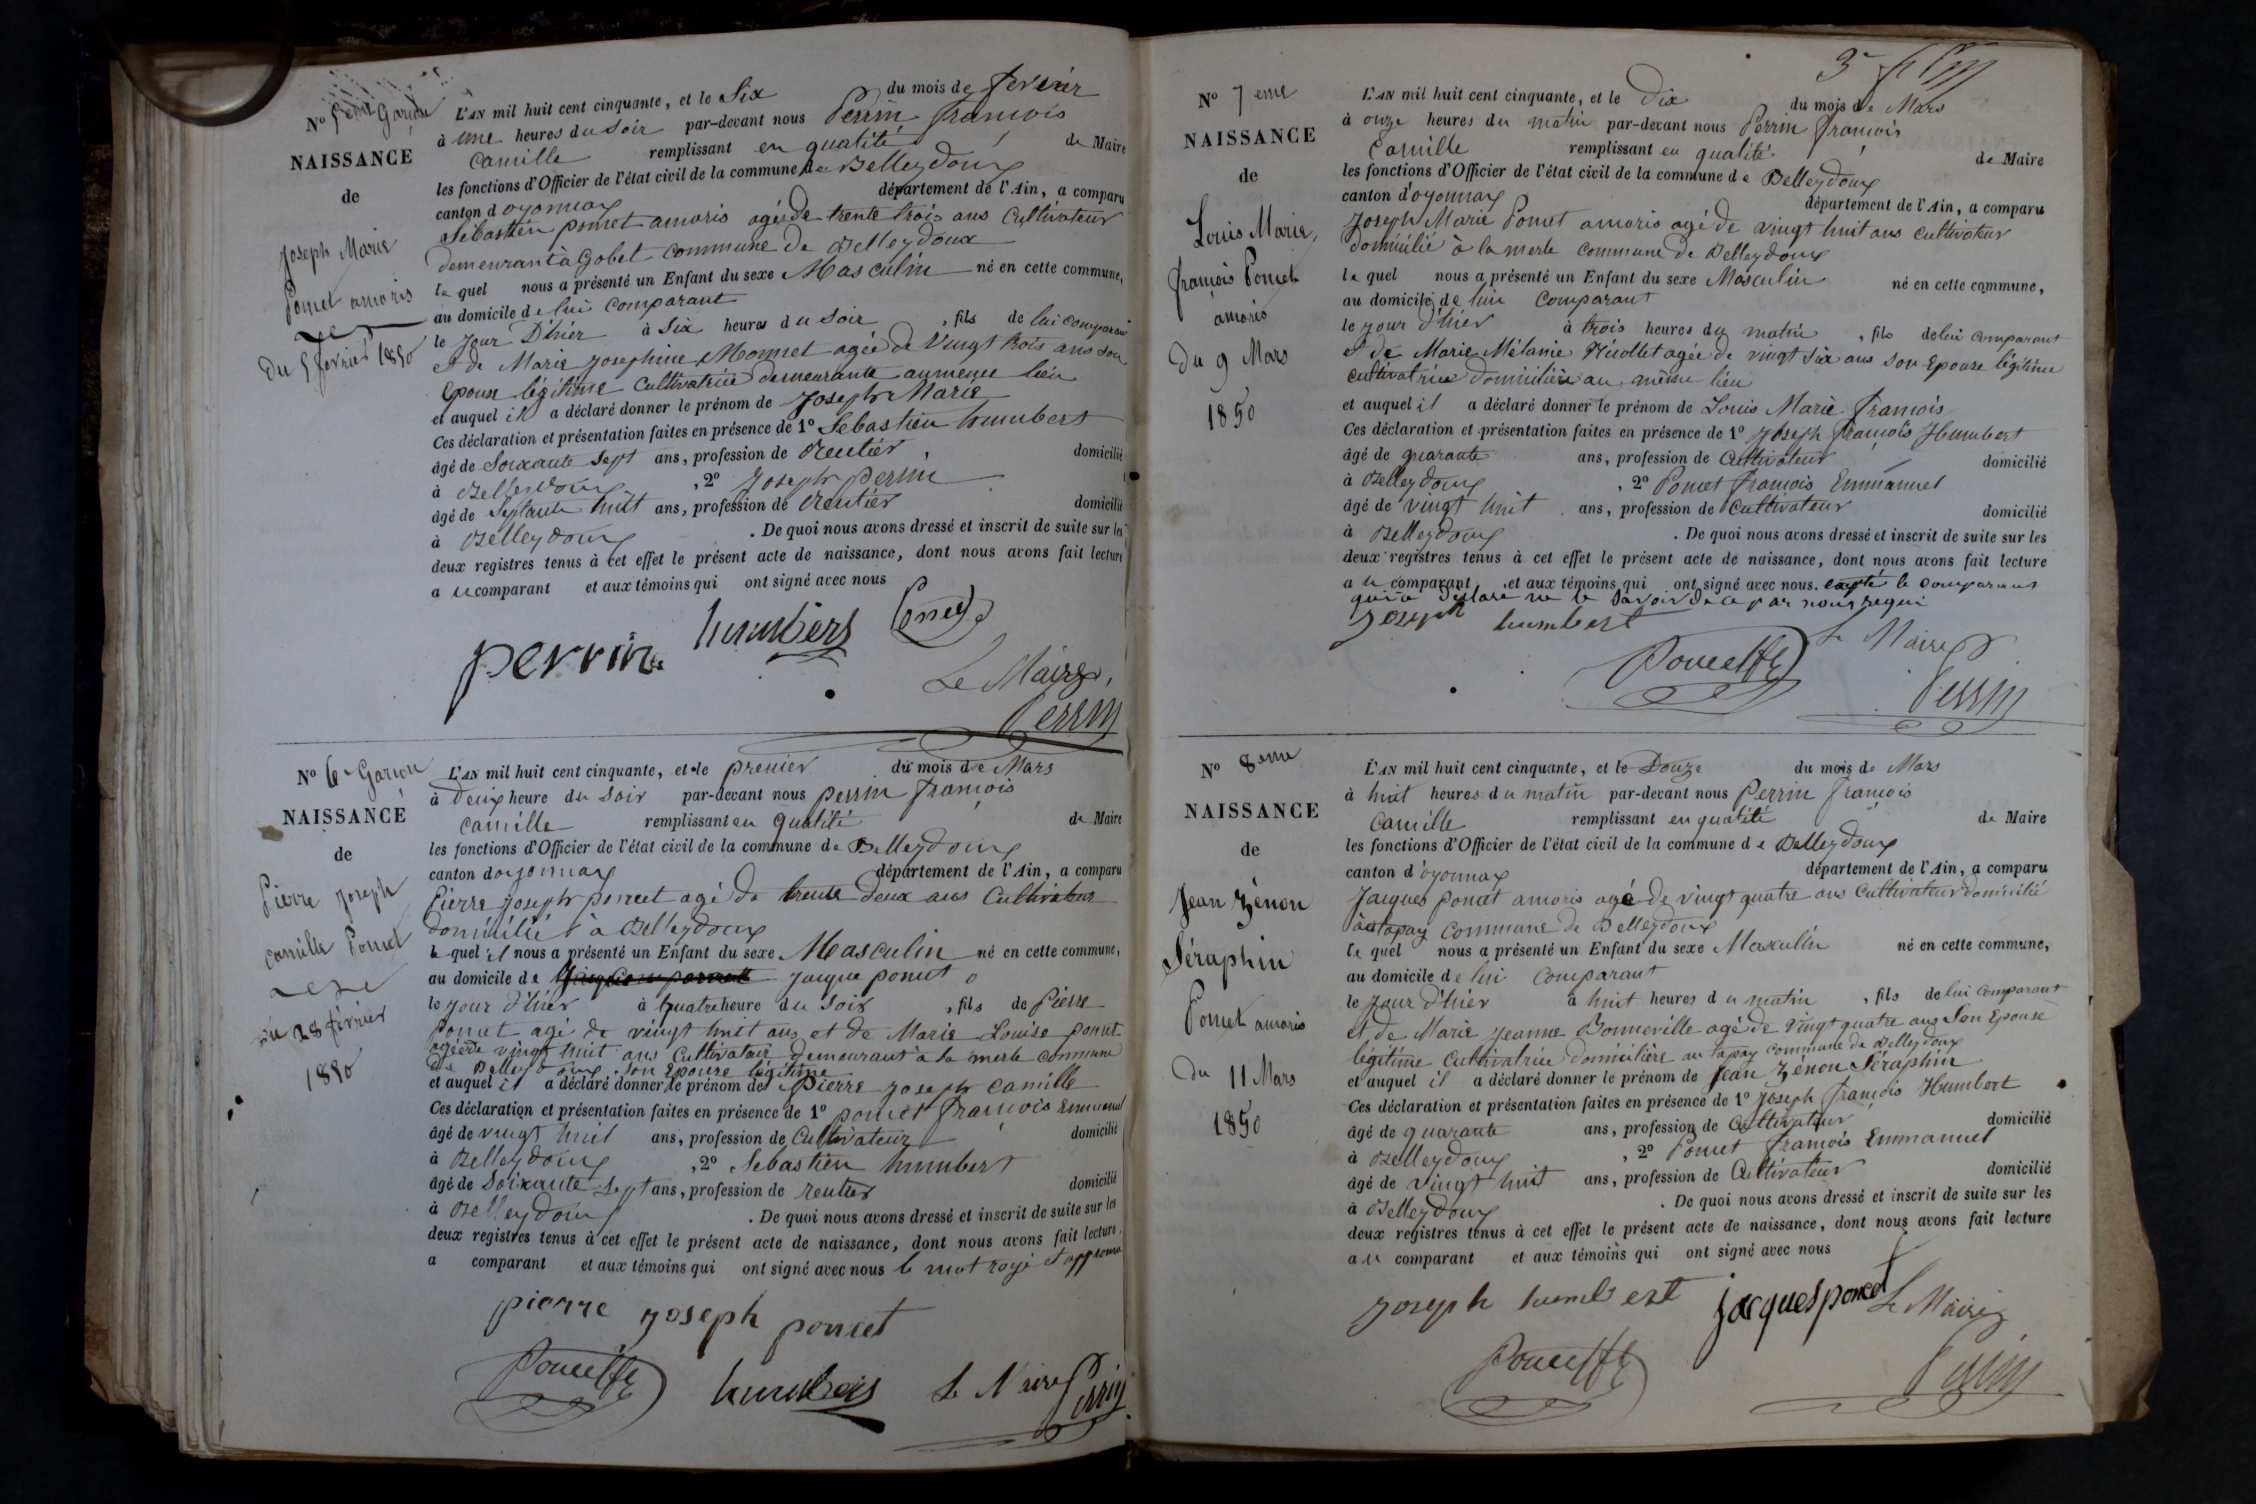 N° 5eme Garçon
NAISSANCE
de
Joseph Marie
Poncet amoris
du 5 février 1850
L'AN mil huit cent cinquante, et le Six du mois de fevrier
à une heures du soir par-devant nous Perrin françois
Camille remplissant en qualité de Maire
les fonctions d'Officier de l'état civil de la commune de Belleydoux
canton d oyonnax département de l'Ain, a comparu
Sébastien poncet amoris agé de trente trois ans Cultivateur
demeurant à Gobet commune de Belleydoux
le quel nous a présenté un Enfant du sexe Masculin né en cette commune,
au domicile de lui comparant
le jour D'hier à Six heures du Soir, fils de lui comparant
et de Marie josephine Monnet agée de Vingt trois ans son
Epouse légitime Cultivatrice demeurante au meme lieu
et auquel il a déclaré donner le prénom de Joseph Marie
Ces déclaration et présentation faites en présence de 1° Sebastien humbert
âgé de Soixante Sept ans, profession de Rentier domicilié
à Belleydoux, 2° Joseph perrin
âgé de Septante huit ans, profession de Rentier domicilié
à Belleydoux. De quoi nous avons dressé et inscrit de suite sur les
deux registres tenus à cet effet le présent acte de naissance, dont nous avons fait lecture
a u comparant et aux témoins qui ont signé avec nous
perrin humbert Poncet
Le Maire,
Perrin
N° 6e Garçon
NAISSANCE
de
Pierre Joseph
camille Poncet
du 28 février
1850
L'AN mil huit cent cinquante, et le premier du mois de Mars
à deux heure du Soir par-devant nous perrin françois
Camille remplissant en qualité de Maire
les fonctions d'Officier de l'état civil de la commune de Belleydoux
canton d oyonnax département de l'Ain, a comparu
Pierre joseph poncet agé de trente deux ans Cultivateur
domicilié à Belleydoux
le quel il nous a présenté un Enfant du sexe Masculin né en cette commune,
au domicile de jacque poncet
le jour d'hier à quatre heure du Soir, fils de Pierre
Poncet agé de vingt huit ans et de Marie Louise poncet
agée de vingt huit ans Cultivatair demeurant à la merle commune
de Belleydoux Son Epouse légitime
et auquel il a déclaré donner le prénom de Pierre joseph camille
Ces déclaration et présentation faites en présence de 1° poncet françois Emmanuel
âgé de vingt huit ans, profession de Cultivateur domicilié
à Belleydoux, 2° Sebastien humbert
âgé de Soixante Sept ans, profession de rentier domicilié
à Belleydoux. De quoi nous avons dressé et inscrit de suite sur les
deux registres tenus à cet effet le présent acte de naissance, dont nous avons fait lecture
a comparant et aux témoins qui ont signé avec nous le mot rayé et approuvé
pierre joseph poncet
Poncet fe humbert Le Maire Perrin
3e
N° 7eme
NAISSANCE
de
Louis Marie,
françois Poncet
amoris
du 9 Mars
1850
L'AN mil huit cent cinquante, et le Dix du mois de Mars
à onze heures du matin par-devant nous Perrin françois
Camille remplissant en qualité de Maire
les fonctions d'Officier de l'état civil de la commune de Belleydoux
canton d'oyonnax département de l'Ain, a comparu
Joseph Marie Poncet amoris agé de vingt huit ans cultivateur
domicilié à la merle commune de Belleydoux
le quel nous a présenté un Enfant du sexe Masculin né en cette commune,
au domicile de lui Comparant
le jour d'hier à trois heures du matin, fils de lui comparant
et de Marie Mélanie agée de vingt six ans son Epouse légitime
cultivatrice domicilière au même lieu
et auquel il a déclaré donner le prénom de Louis Marie françois
Ces déclaration et présentation faites en présence de 1° Joseph françois Humbert
âgé de quarante ans, profession de Cultivateur domicilié
à Belleydoux, 2° Poncet françois Emmanuel
âgé de vingt huit ans, profession de Cultivateur domicilié
à Belleydoux. De quoi nous avons dressé et inscrit de suite sur les
deux registres tenus à cet effet le présent acte de naissance, dont nous avons fait lecture
a u comparant et aux témoins qui ont signé avec nous. excepté le comparant
qui a déclaré ne le savoir de ce par nous requi
Joseph humbert
Poncet fe Le Maire
Perrin
N° 8eme
NAISSANCE
de
Jean Zénon
Séraphin
Poncet amoris
du 11 Mars
1850
L'AN mil huit cent cinquante, et le Douze du mois de Mars
à huit heures du matin par-devant nous Perrin françois
Camille remplissant en qualité de Maire
les fonctions d'Officier de l'état civil de la commune de Belleydoux
canton d'oyonnax département de l'Ain, a comparu
Jacques poncet amoris agé de vingt quatre ans Cultivateur domicilié
au tapay Commune de Belleydoux
le quel nous a présenté un Enfant du sexe Masculin né en cette commune,
au domicile de lui Comparant
le jour d'hier à huit heures du matin, fils de lui comparant
et de Marie Jeanne Bonneville agé de vingt quatre ans Son Epouse
légitime Cultivatrice domicilière au tapay commune de Belleydoux
et auquel il a déclaré donner le prénom de Jean Zénon Séraphin
Ces déclaration et présentation faites en présence de 1° Joseph françois Humbert
âgé de quarante ans, profession de Cultivateur domicilié
à Belleydoux, 2° Poncet françois Emmanuel
âgé de vingt huit ans, profession de Cultivateur domicilié
à Belleydoux. De quoi nous avons dressé et inscrit de suite sur les
deux registres tenus à cet effet le présent acte de naissance, dont nous avons fait lecture
a u comparant et aux témoins qui ont signé avec nous
Joseph humbert jacques poncet Le Maire
Poncet fe Perrin